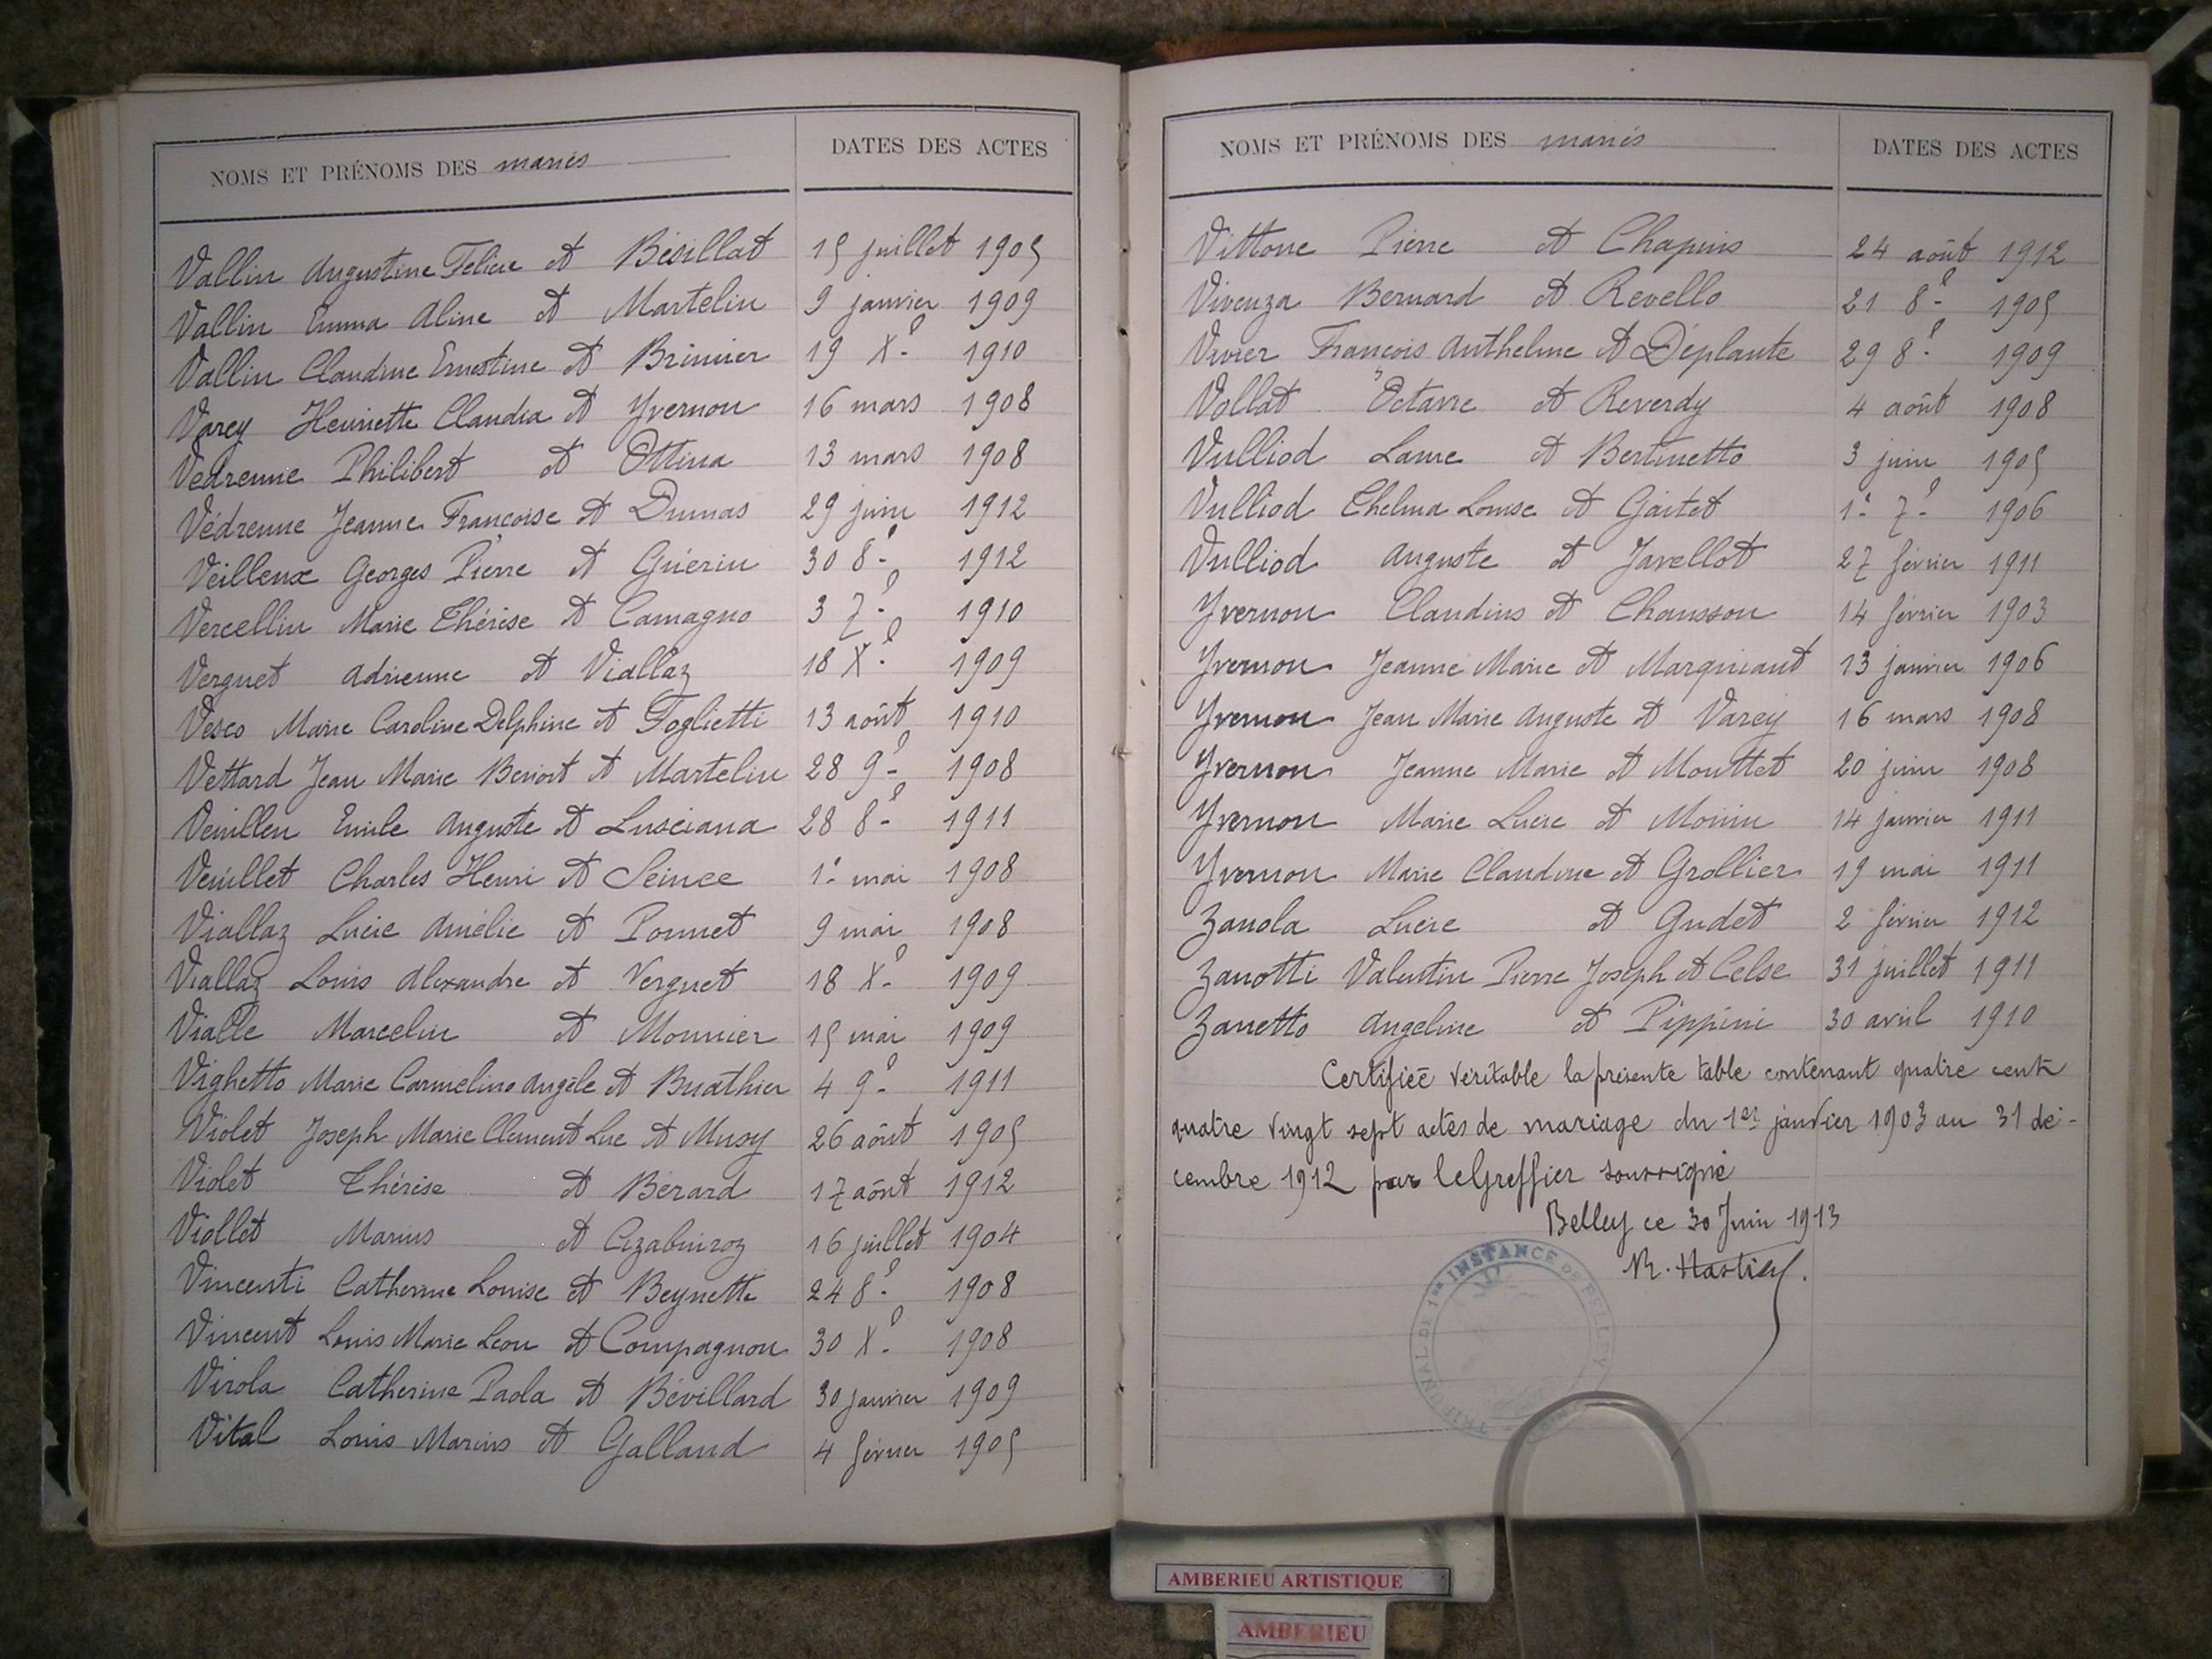 NOMS ET PRÉNOMS DES mariés DATES DES ACTES
Vallin Augustine Félicie et Bésillat 15 juillet 1905
Vallin Emma Aline et Martelin 9 janvier 1909
Vallin Claudine Ernestine et Brunier 19 Xe 1910
Varey Henriette Claudia et Yvernon 16 mars 1908
Vedrenne Philibert et Ottina 13 mars 1908
Védrenne Jeanne Françoise et Dumas 29 juin 1912
Veilleux Georges Pierre et Guérin 30 8e 1912
Vercellin Marie Thérèse et Camagno 3 7e 1910
Verguet Adrienne et Viallaz 18 Xe 1909
Vesco Marie Caroline Delphine et Foglietti 13 août 1910
Vettard Jean Marie Benoit et Martelin 28 9e 1908
Veuillen Emile Auguste et Lusciana 28 8e 1911
Veuillet Charles Henri et Seince 1er mai 1908
Viallaz Lucie Amélie et Ponnet 9 mai 1908
Viallaz Louis Alexandre et Verguet 18 Xe 1909
Vialle Marcelin et Monnier 15 mai 1909
Vighetto Marie Carmeline Angèle et Buathier 4 9e 1911
Violet Joseph Marie Clement Luc et Musy 26 août 1905
Violet Thérèse et Bérard 17 août 1912
Viollet Marius et 16 juillet 1904
Vincenti Catherine Louise et Beynette 24 8e 1908
Vincent Louis Marie Léon et Compagnon 30 Xe 1908
Virola Catherine Paola et Bévillard 30 janvier 1909
Vital Louis Marius et Galland 4 février 1905
NOMS ET PRÉNOMS DES mariés DATES DES ACTES
Vittone Pierre et Chapuis 24 août 1912
Vivenza Bernard et Revello 21 8e 1905
Vivier François Anthelme et Déplante 29 8e 1909
Vollat Octavie et Reverdy 4 août 1908
Vulliod Laure et Bertinetto 3 juin 1905
Vulliod Thelma Louise et Gaitet 1er 7e 1906
Vulliod Auguste et Javellot 27 février 1911
Yvernon Claudius et Chausson 14 février 1903
Yvernon Jeanne Marie et Marguicaud 13 janvier 1906
Yvernon Jean Marie Auguste et Varey 16 mars 1908
Yvernon Jeanne Marie et Mouttet 20 juin 1908
Yvernon Marie Lucie et 14 janvier 1911
Yvernon Marie Claudine et Grollier 19 mai 1911
Zanola Lucie et Gudet 2 février 1912
Zanotti Valentin Pierre Joseph et Celse 31 juillet 1911
Zanetto Angeline et Pippini 30 avril 1910
Certifiée véritable la présente table contenant quatre cent
quatre vingt sept actes de mariage du 1er janvier 1903 au 31 dé-
cembre 1912 par le Greffier soussigné
Belley ce 30 Juin 1913
TRIBUNAL DE 1re INSTANCE DE BELLEY
AMBERIEU ARTISTIQUE
AMBERIEU